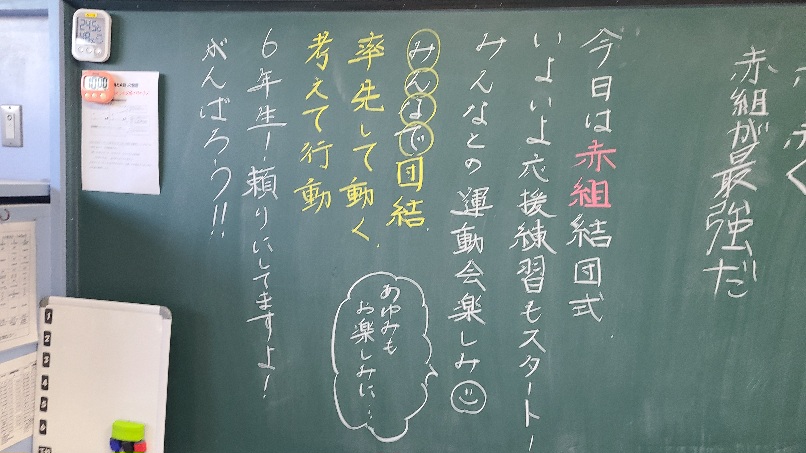 赤組が最強だ
今日は赤組結団式
いよいよ応援練習もスタート!
みんなとの運動会楽しみ
みんなで団結
率先して動く
考えて行動
あゆみも
お楽しみに…
6年生!頼りにしてますよ!
がんばろう!!
1
2
3
4
5
6